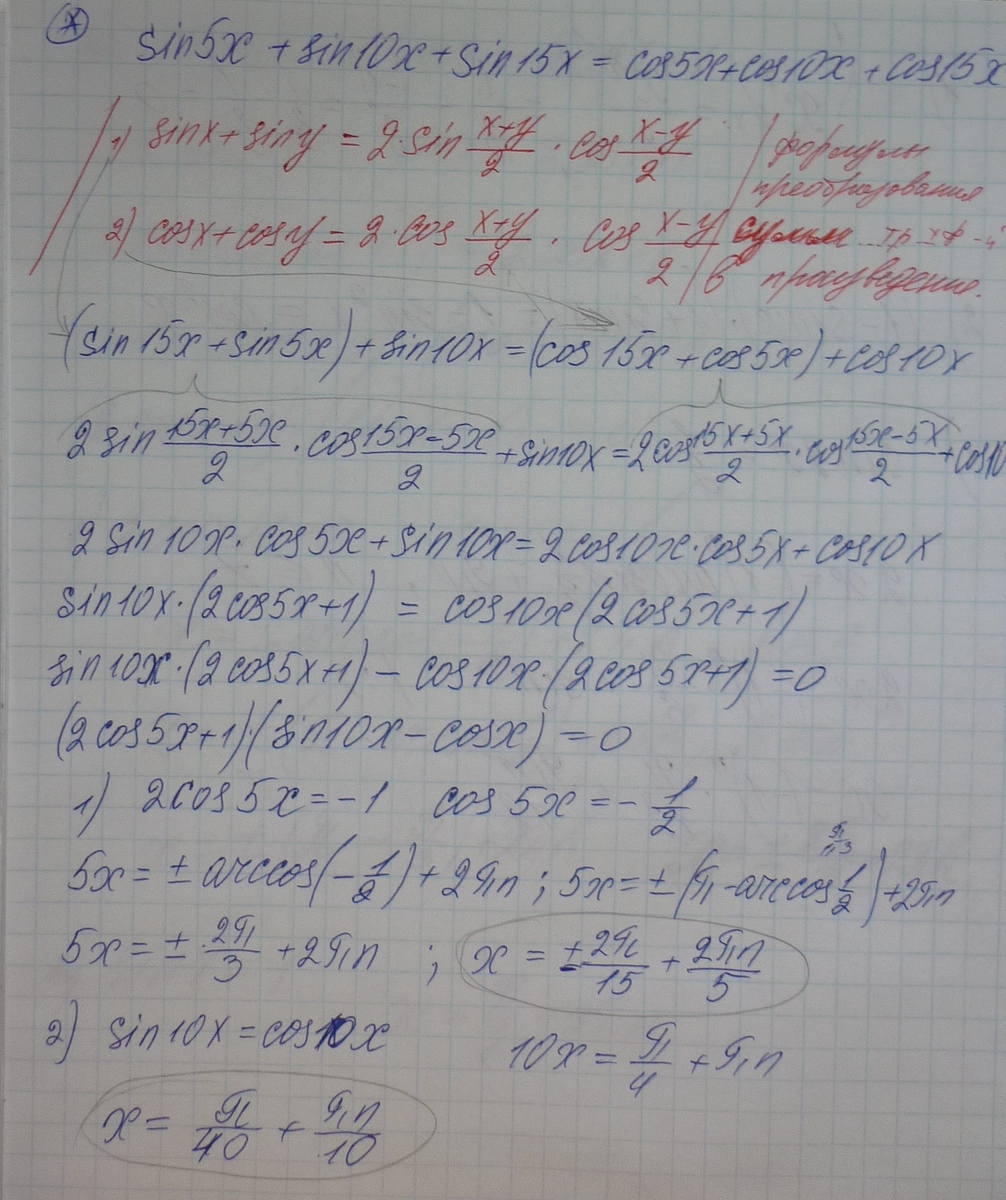 *
sin5x + sin10x + sin15x = cos5x + cos10x + cos15x
1) sinx + siny = 2·sin (x+y)/2 · cos (x-y)/2
формулы
преобразования
2) cosx + cosy = 2·cos (x+y)/2 · cos (x-y)/2
суммы
в произведение.
(sin15x + sin5x) + sin10x = (cos15x + cos5x) + cos10x
2sin (15x+5x)/2 · cos (15x-5x)/2 + sin10x = 2cos (15x+5x)/2 · cos (15x-5x)/2 + cos10
2sin10x · cos5x + sin10x = 2cos10x · cos5x + cos10x
sin10x·(2cos5x+1) = cos10x(2cos5x+1)
sin10x·(2cos5x+1) - cos10x·(2cos5x+1) = 0
(2cos5x+1)·(sin10x - cosx) = 0
1) 2cos5x = -1 cos5x = - 1/2
π/3
5x = ± arccos(-1/2) + 2πn ; 5x = ± (π - arccos 1/2) + 2πn
5x = ± 2π/3 + 2πn ; x = ± 2π/15 + 2πn/5
2) sin10x = cos10x 10x = π/4 + πn
x = π/40 + πn/10